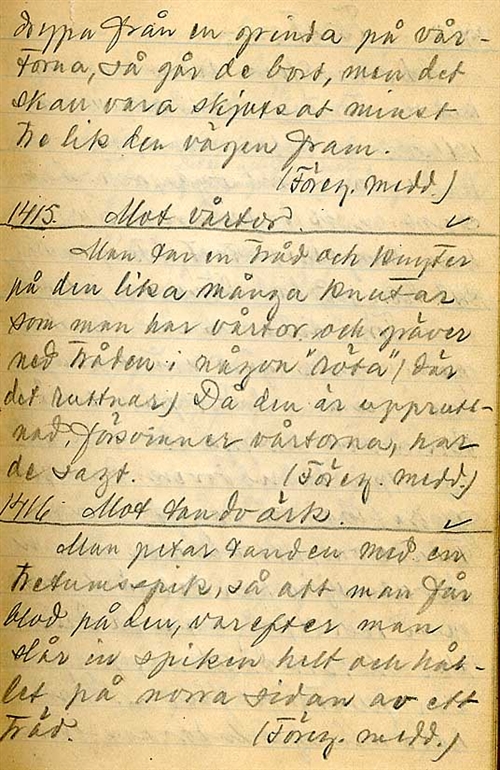 drypa från en grinda på vår-
torna, så går de bort, men det
skall vara skjutsat minst
tre lik den vägen fram.
(Föreg. medd.)
1415. Mot vårtor. ✓
Man tar en tråd och knyter
på den lika många knutar
som man har vårtor och gräver
ned tråden i någon "röta" (där
det ruttnar) Då den är upprutt-
nad, försvinner vårtorna, har
de sagt. (Föreg. medd.)
1416. Mot tandvärk. ✓
Man petar tanden med en
tretumsspik, så att man får
blod på den, varefter man
slår in spiken helt och hål-
let på norra sidan av ett
träd. (Föreg. medd.)